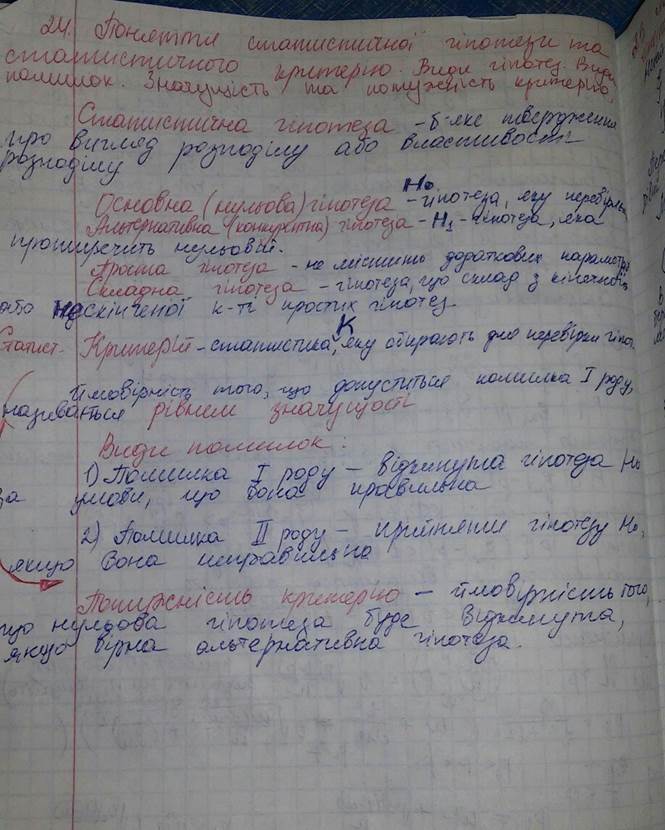 24. Поняття статистичної гіпотези та
статистичного критерію. Види гіпотез. Види
помилок. Значущість та потужність критерію.
Статистична гіпотеза - б-яке твердження
про вигляд розподілу або властивості
розподілу
Основна (нульова) гіпотеза H₀ - гіпотеза, яку перевір
Альтернативна (конкурентна) гіпотеза - H₁ - гіпотеза, яка
протирічить нульовій.
Проста гіпотеза - не містить додаткових параметрів
Складна гіпотеза - гіпотеза, що склад з кінетної
або нескінченої к-ті простих гіпотез
Статист. Критерій - статистика, K яку обирають для перевірки гіпот.
Ймовірність того, що допуститься помилка I роду,
називається рівнем значущості
Види помилок:
1) Помилка I роду - відкинута гіпотеза H₀
за умови, що вона правильна
2) Помилка II роду - прийняти гіпотезу H₀,
якщо вона неправильна
Потужність критерію - ймовірність того,
що нульова гіпотеза буде відкинута,
якщо вірна альтернативна гіпотеза.